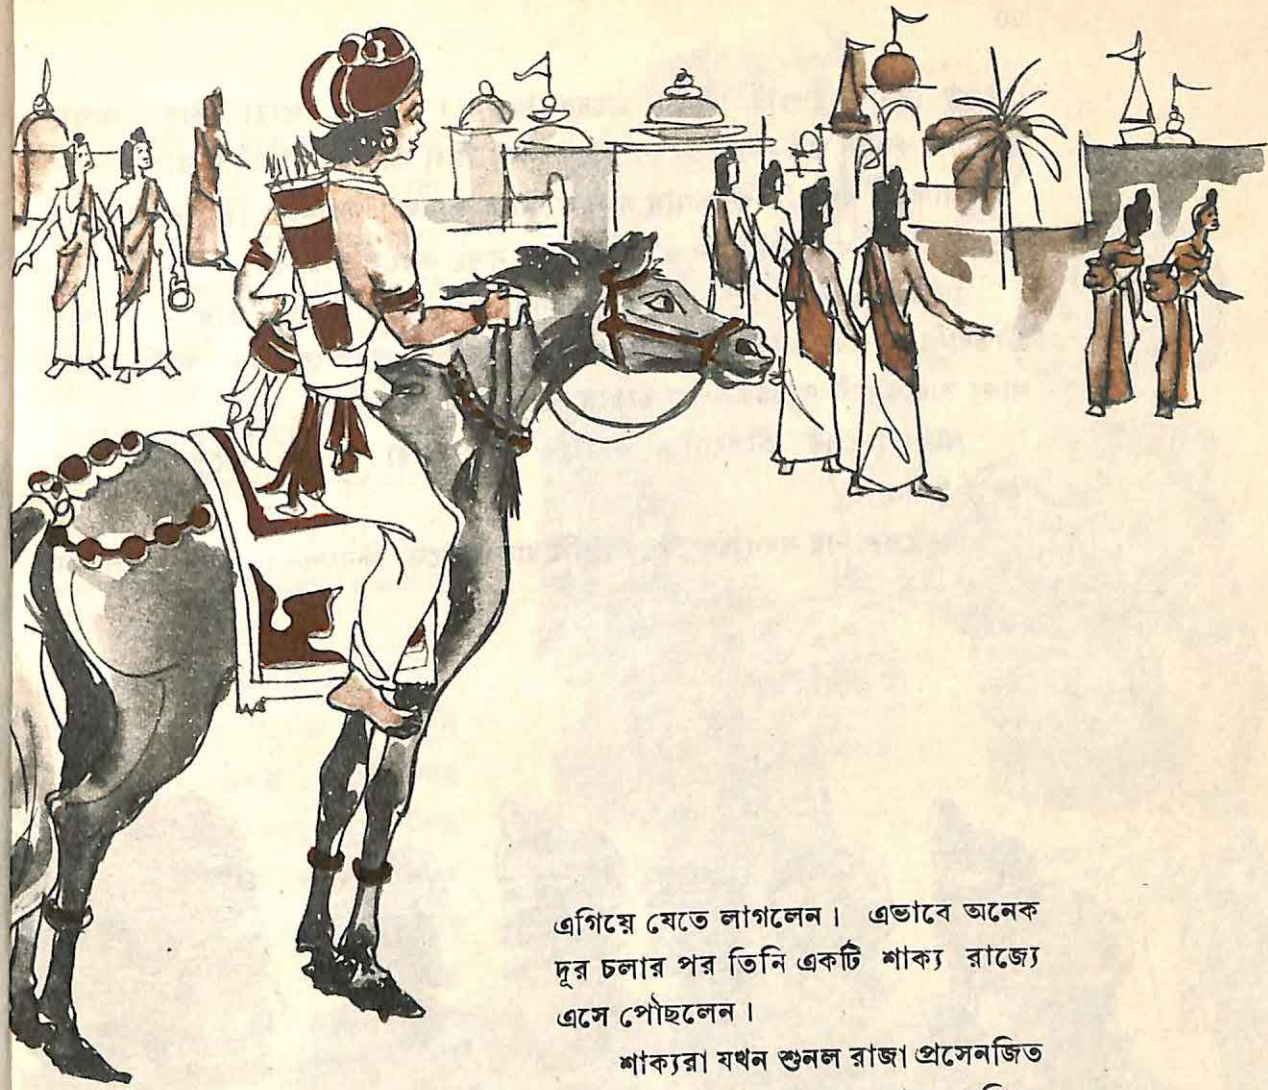 এগিয়ে যেতে লাগলেন। এভাবে অনেক
দূর চলার পর তিনি একটি শাক্য রাজ্যে
এসে পৌছলেন।
শাক্যরা যখন শুনল রাজা প্রসেনজিত